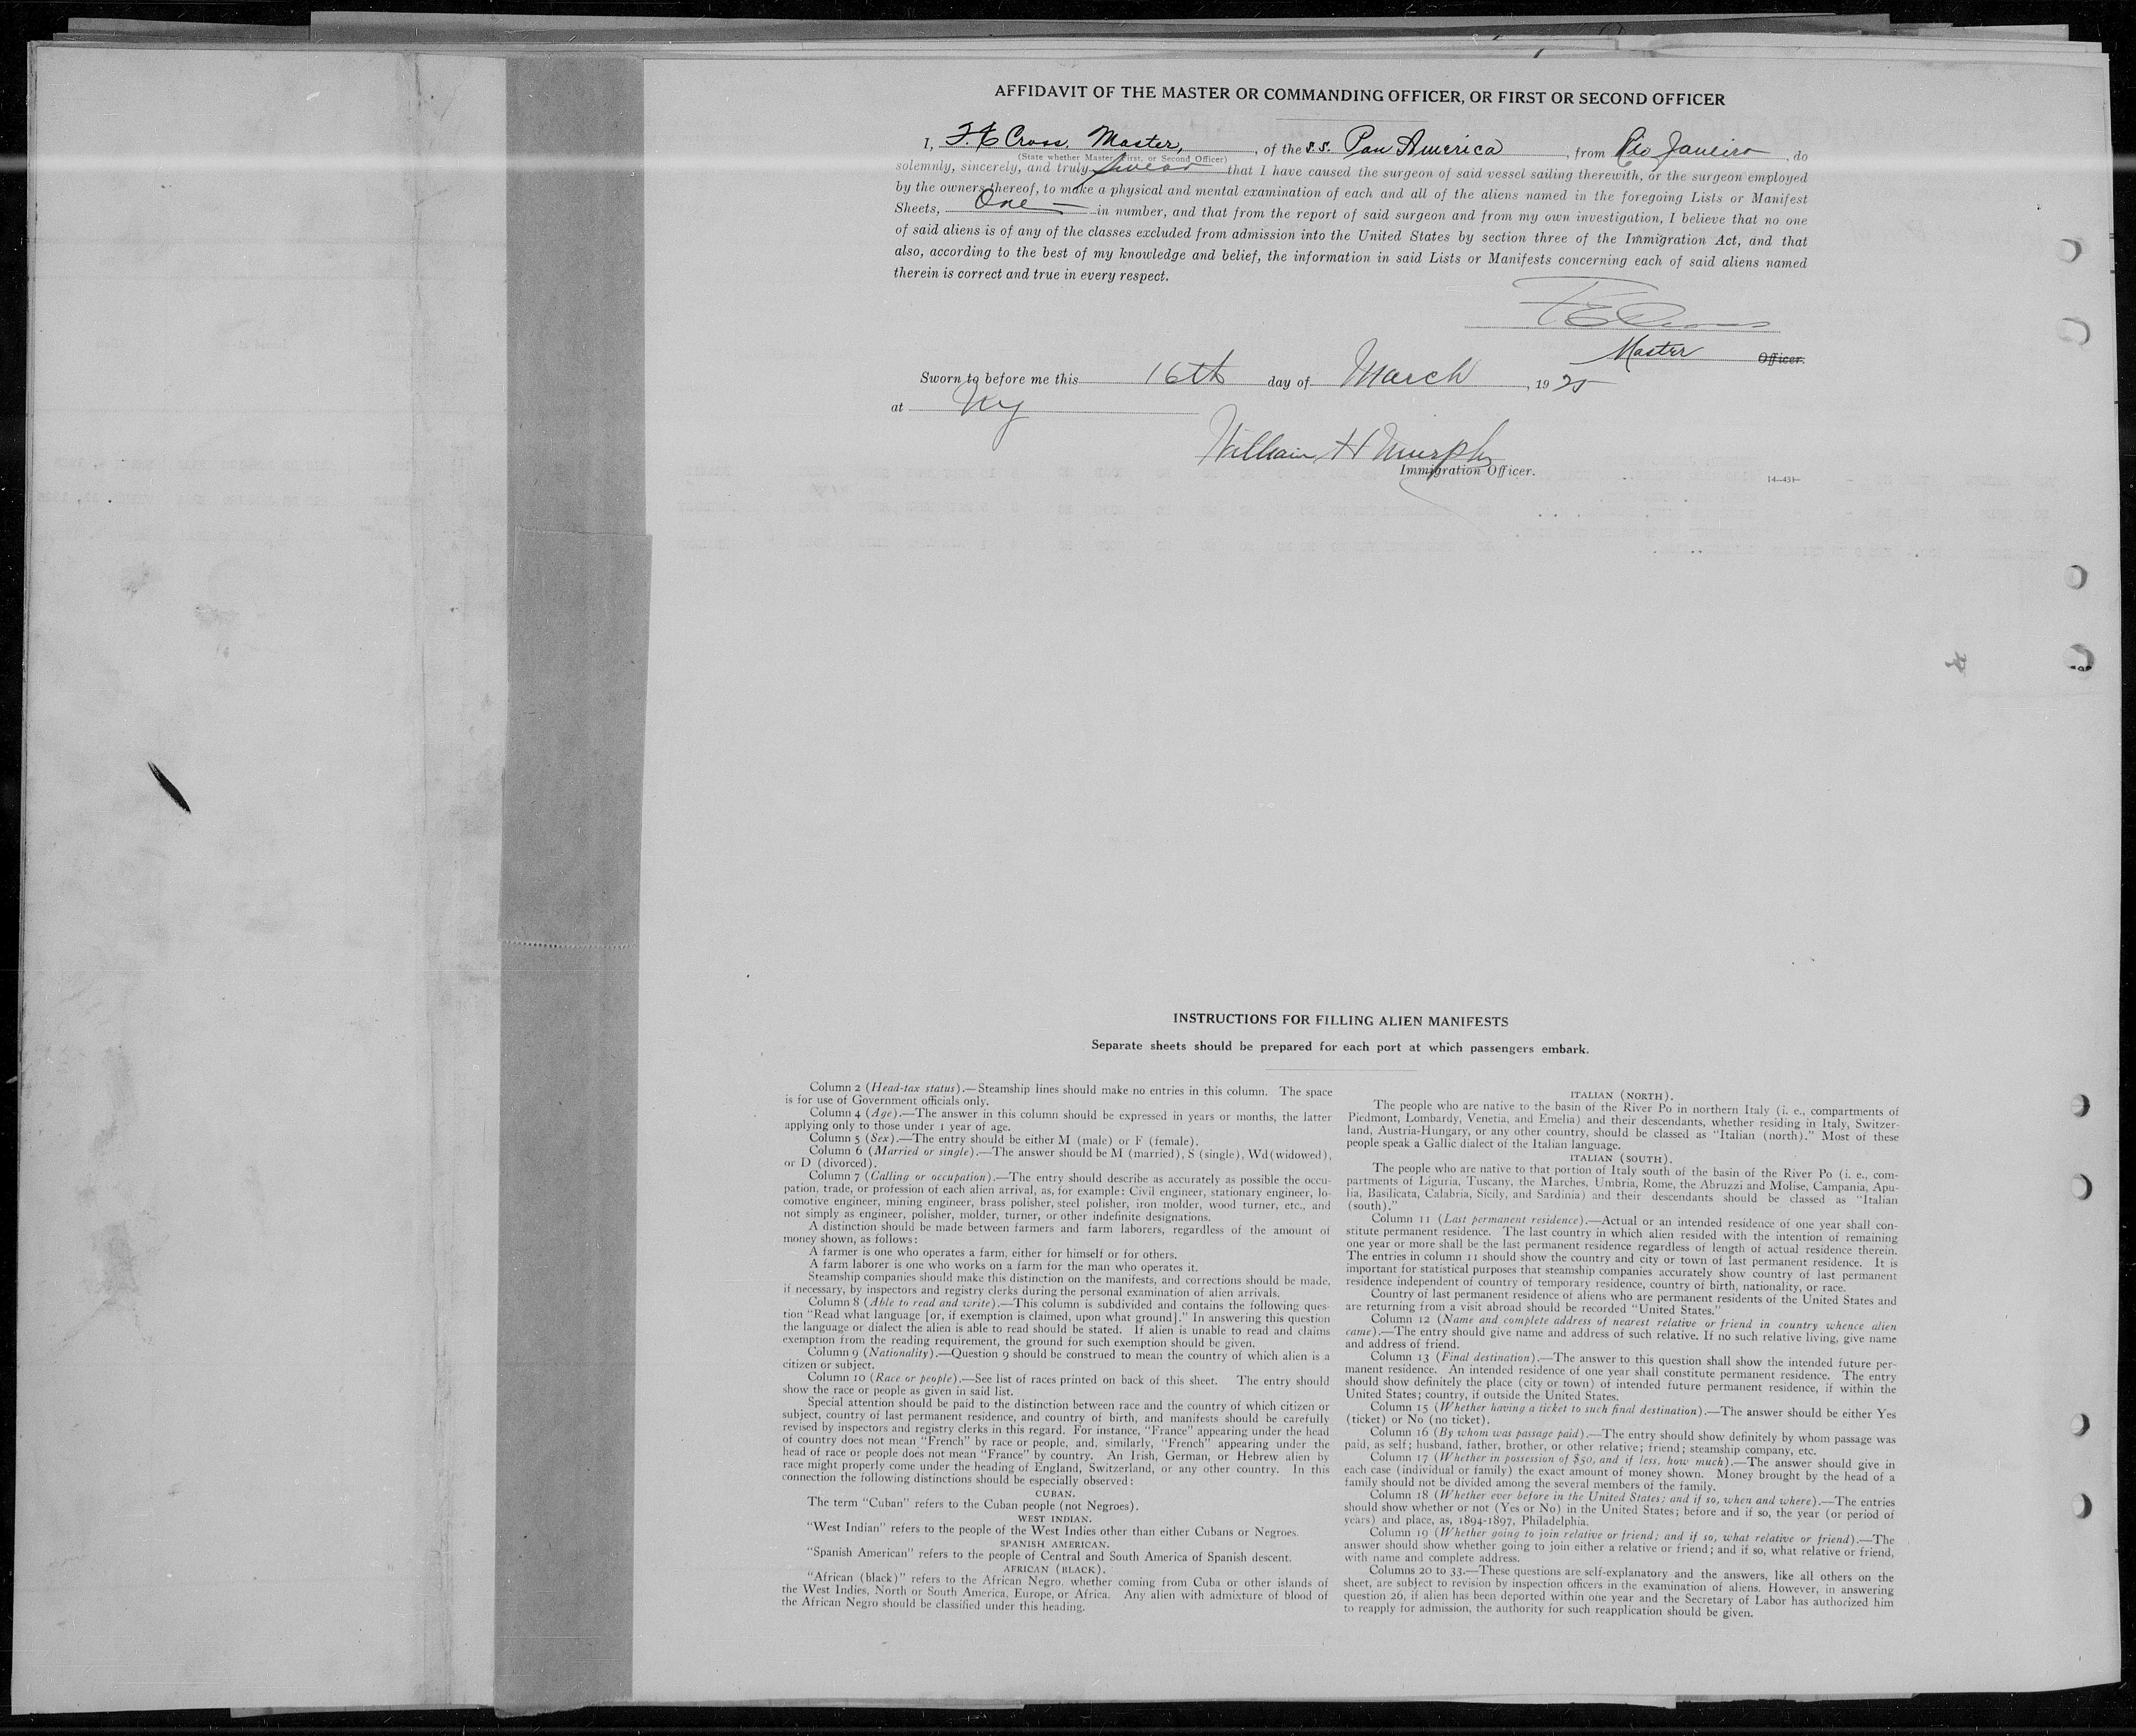 AFFIDAVIT OF THE MASTER OR COMMANDING OFFICER, OR FIRST OR SECOND OFFICER
I, F. E Cross, Master, , of the S.S. Pan America , from Rio Janeiro , do
(State whether Master, First, or Second Officer)
solemnly, sincerely, and truly swear that I have caused the surgeon of said vessel sailing therewith, or the surgeon employed
by the owners thereof, to make a physical and mental examination of each and all of the aliens named in the foregoing Lists or Manifest
Sheets, One — in number, and that from the report of said surgeon and from my own investigation, I believe that no one
of said aliens is of any of the classes excluded from admission into the United States by section three of the Immigration Act, and that
also, according to the best of my knowledge and belief, the information in said Lists or Manifests concerning each of said aliens named
therein is correct and true in every respect.
F E Cross
Master Officer.
Sworn to before me this 16th day of March , 1925
at NY
William H Murphy
Immigration Officer.
14—431
INSTRUCTIONS FOR FILLING ALIEN MANIFESTS
Separate sheets should be prepared for each port at which passengers embark.
Column 2 (Head-tax status).—Steamship lines should make no entries in this column. The space
is for use of Government officials only.
Column 4 (Age).—The answer in this column should be expressed in years or months, the latter
applying only to those under 1 year of age.
Column 5 (Sex).—The entry should be either M (male) or F (female).
Column 6 (Married or single).—The answer should be M (married), S (single), Wd(widowed),
or D (divorced).
Column 7 (Calling or occupation).—The entry should describe as accurately as possible the occu-
pation, trade, or profession of each alien arrival, as, for example: Civil engineer, stationary engineer, lo-
comotive engineer, mining engineer, brass polisher, steel polisher, iron molder, wood turner, etc., and
not simply as engineer, polisher, molder, turner, or other indefinite designations.
A distinction should be made between farmers and farm laborers, regardless of the amount of
money shown, as follows:
A farmer is one who operates a farm, either for himself or for others.
A farm laborer is one who works on a farm for the man who operates it.
Steamship companies should make this distinction on the manifests, and corrections should be made,
if necessary, by inspectors and registry clerks during the personal examination of alien arrivals.
Column 8 (Able to read and write).—This column is subdivided and contains the following ques-
tion "Read what language [or, if exemption is claimed, upon what ground]." In answering this question
the language or dialect the alien is able to read should be stated. If alien is unable to read and claims
exemption from the reading requirement, the ground for such exemption should be given.
Column 9 (Nationality).—Question 9 should be construed to mean the country of which alien is a
citizen or subject.
Column 10 (Race or people).—See list of races printed on back of this sheet. The entry should
show the race or people as given in said list.
Special attention should be paid to the distinction between race and the country of which citizen or
subject, country of last permanent residence, and country of birth, and manifests should be carefully
revised by inspectors and registry clerks in this regard. For instance, "France" appearing under the head
of country does not mean "French" by race or people, and, similarly, "French" appearing under the
head of race or people does not mean "France" by country. An Irish, German, or Hebrew alien by
race might properly come under the heading of England, Switzerland, or any other country. In this
connection the following distinctions should be especially observed:
CUBAN.
The term "Cuban" refers to the Cuban people (not Negroes).
WEST INDIAN.
"West Indian" refers to the people of the West Indies other than either Cubans or Negroes.
SPANISH AMERICAN.
"Spanish American" refers to the people of Central and South America of Spanish descent.
AFRICAN (BLACK).
"African (black)" refers to the African Negro, whether coming from Cuba or other islands of
the West Indies, North or South America, Europe, or Africa. Any alien with admixture of blood of
the African Negro should be classified under this heading.
ITALIAN (NORTH).
The people who are native to the basin of the River Po in northern Italy (i. e., compartments of
Piedmont, Lombardy, Venetia, and Emelia) and their descendants, whether residing in Italy, Switzer-
land, Austria-Hungary, or any other country, should be classed as "Italian (north)." Most of these
people speak a Gallic dialect of the Italian language.
ITALIAN (SOUTH).
The people who are native to that portion of Italy south of the basin of the River Po (i. e., com-
partments of Liguria, Tuscany, the Marches, Umbria, Rome, the Abruzzi and Molise, Campania, Apu-
lia, Basilicata, Calabria, Sicily, and Sardinia) and their descendants should be classed as "Italian
(south)."
Column 11 (Last permanent residence).—Actual or an intended residence of one year shall con-
stitute permanent residence. The last country in which alien resided with the intention of remaining
one year or more shall be the last permanent residence regardless of length of actual residence therein.
The entries in column 11 should show the country and city or town of last permanent residence. It is
important for statistical purposes that steamship companies accurately show country of last permanent
residence independent of country of temporary residence, country of birth, nationality, or race.
Country of last permanent residence of aliens who are permanent residents of the United States and
are returning from a visit abroad should be recorded "United States."
Column 12 (Name and complete address of nearest relative or friend in country whence alien
came).—The entry should give name and address of such relative. If no such relative living, give name
and address of friend.
Column 13 (Final destination).—The answer to this question shall show the intended future per-
manent residence. An intended residence of one year shall constitute permanent residence. The entry
should show definitely the place (city or town) of intended future permanent residence, if within the
United States; country, if outside the United States.
Column 15 (Whether having a ticket to such final destination).—The answer should be either Yes
(ticket) or No (no ticket).
Column 16 (By whom was passage paid).—The entry should show definitely by whom passage was
paid, as self; husband, father, brother, or other relative; friend; steamship company, etc.
Column 17 (Whether in possession of $50, and if less, how much).—The answer should give in
each case (individual or family) the exact amount of money shown. Money brought by the head of a
family should not be divided among the several members of the family.
Column 18 (Whether ever before in the United States; and if so, when and where).—The entries
should show whether or not (Yes or No) in the United States; before and if so, the year (or period of
years) and place, as, 1894-1897, Philadelphia.
Column 19 (Whether going to join relative or friend; and if so, what relative or friend).—The
answer should show whether going to join either a relative or friend; and if so, what relative or friend,
with name and complete address.
Columns 20 to 33.—These questions are self-explanatory and the answers, like all others on the
sheet, are subject to revision by inspection officers in the examination of aliens. However, in answering
question 26, if alien has been deported within one year and the Secretary of Labor has authorized him
to reapply for admission, the authority for such reapplication should be given.